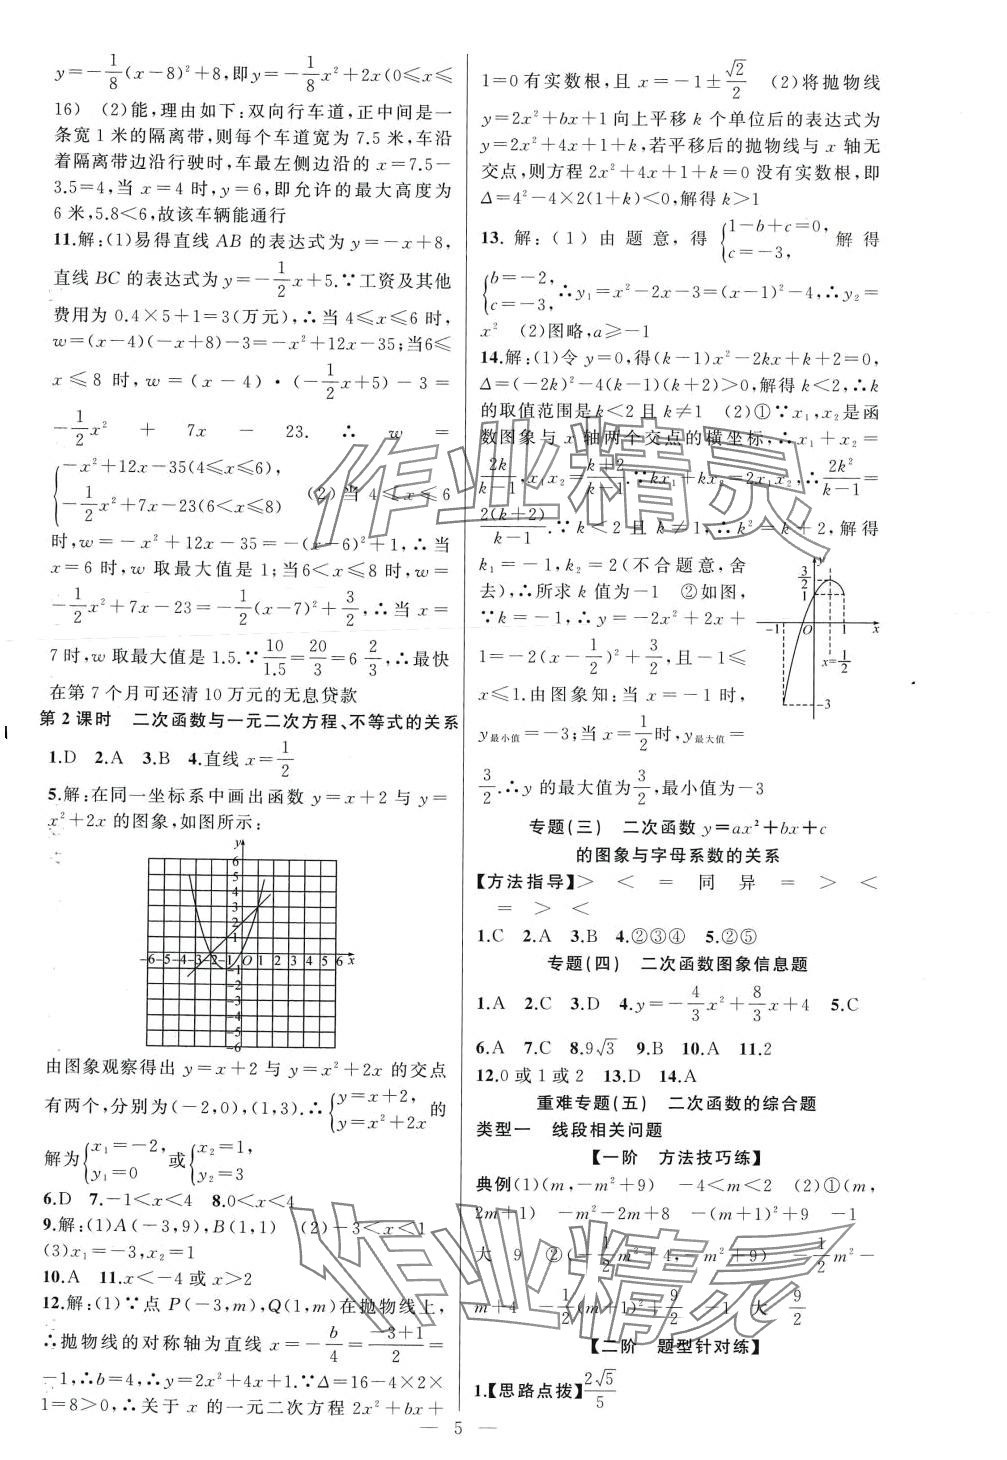 y=-1/8(x-8)²+8,即y=-1/8x²+2x(0≤x≤
16) (2)能,理由如下:双向行车道,正中间是一
条宽1米的隔离带,则每个车道宽为7.5米,车沿
着隔离带边沿行驶时,车最左侧边沿的x=7.5-
3.5=4,当x=4时,y=6,即允许的最大高度为
6米,5.8<6,故该车辆能通行
11.解:(1)易得直线AB的表达式为y=-x+8,
直线BC的表达式为y=-1/2x+5.∵工资及其他
费用为0.4×5+1=3(万元),∴当4≤x≤6时,
w=(x-4)(-x+8)-3=-x²+12x-35;当6≤
x≤8时,w=(x-4)·(-1/2x+5)-3=
-1/2x²+7x-23.∴w=
{-x²+12x-35(4≤x≤6),
-1/2x²+7x-23(6≤x≤8) (2)当4≤x≤6
时,w=-x²+12x-35=-(x-6)²+1,当
x=6时,w取最大值是1;当6<x≤8时,w=
-1/2x²+7x-23=-1/2(x-7)²+3/2,∴当x=
7时,w取最大值是1.5.∵10/1.5=20/3=6 2/3,∴最快
在第7个月可还清10万元的无息贷款
第2课时 二次函数与一元二次方程、不等式的关系
1.D 2.A 3.B 4.直线x=1/2
5.解:在同一坐标系中画出函数y=x+2与y=
x²+2x的图象,如图所示:
y
6
5
4
3
2
1
-6-5-4-3-2-1O1 2 3 4 5 6 x
-1
-2
-3
-4
-5
-6
由图象观察得出y=x+2与y=x²+2x的交点
有两个,分别为(-2,0),(1,3).∴{y=x+2, y=x²+2x的
解为{x₁=-2, y₁=0或{x₂=1, y₂=3
6.D 7.-1<x<4 8.0<x<4
9.解:(1)A(-3,9),B(1,1) (2)-3<x<1
(3)x₁=-3,x₂=1
10.A 11.x<-4或x>2
12.解:(1)∵点P(-3,m),Q(1,m)在抛物线上,
∴抛物线的对称轴为直线x=-b/4=(-3+1)/2=
-1,∴b=4,∴y=2x²+4x+1.∵Δ=16-4×2×
1=8>0,∴关于x的一元二次方程2x²+bx+
1=0有实数根,且x=-1±√2/2 (2)将抛物线
y=2x²+bx+1向上平移k个单位后的表达式为
y=2x²+4x+1+k,若平移后的抛物线与x轴无
交点,则方程2x²+4x+1+k=0没有实数根,即
Δ=4²-4×2(1+k)<0,解得k>1
13.解:(1)由题意,得{1-b+c=0, c=-3,解得
{b=-2, c=-3,∴y₁=x²-2x-3=(x-1)²-4,∴y₂=
x² (2)图略,a≥-1
14.解:(1)令y=0,得(k-1)x²-2kx+k+2=0,
Δ=(-2k)²-4(k-1)(k+2)>0,解得k<2,∴k
的取值范围是k<2且k≠1 (2)①∵x₁,x₂是函
数图象与x轴两个交点的横坐标,∴x₁+x₂=
2k/(k-1),x₁x₂=(k+2)/(k-1).∵kx₁+kx₂=2x₁x₂,∴2k²/(k-1)=
2(k+2)/(k-1).∵k<2且k≠1,∴k²=k+2,解得
k₁=-1,k₂=2(不合题意,舍
去),∴所求k值为-1 ②如图,
∵k=-1,∴y=-2x²+2x+
1=-2(x-1/2)²+3/2,且-1≤
x≤1.由图象知:当x=-1时,
y最小值=-3;当x=1/2时,y最大值=
3/2.∴y的最大值为3/2,最小值为-3
y
3/2
1
-1 O 1 x
x=1/2
-3
专题(三) 二次函数y=ax²+bx+c
的图象与字母系数的关系
【方法指导】> < = 同 异 = > <
= > <
1.C 2.A 3.B 4.②③④ 5.②⑤
专题(四) 二次函数图象信息题
1.A 2.C 3.D 4.y=-4/3x²+8/3x+4 5.C
6.A 7.C 8.9√3 9.B 10.A 11.2
12.0或1或2 13.D 14.A
重难专题(五) 二次函数的综合题
类型一 线段相关问题
【一阶 方法技巧练】
典例(1)(m,-m²+9) -4<m<2 (2)①(m,
2m+1) -m²-2m+8 -(m+1)²+9 -1
大 9 ②(-1/2m²+4,-m²+9) -1/2m²-
m+4 -1/2(m+1)²+9/2 -1 大 9/2
【二阶 题型针对练】
1.【思路点拨】2√5/5
— 5 —
作业精灵
作业精灵